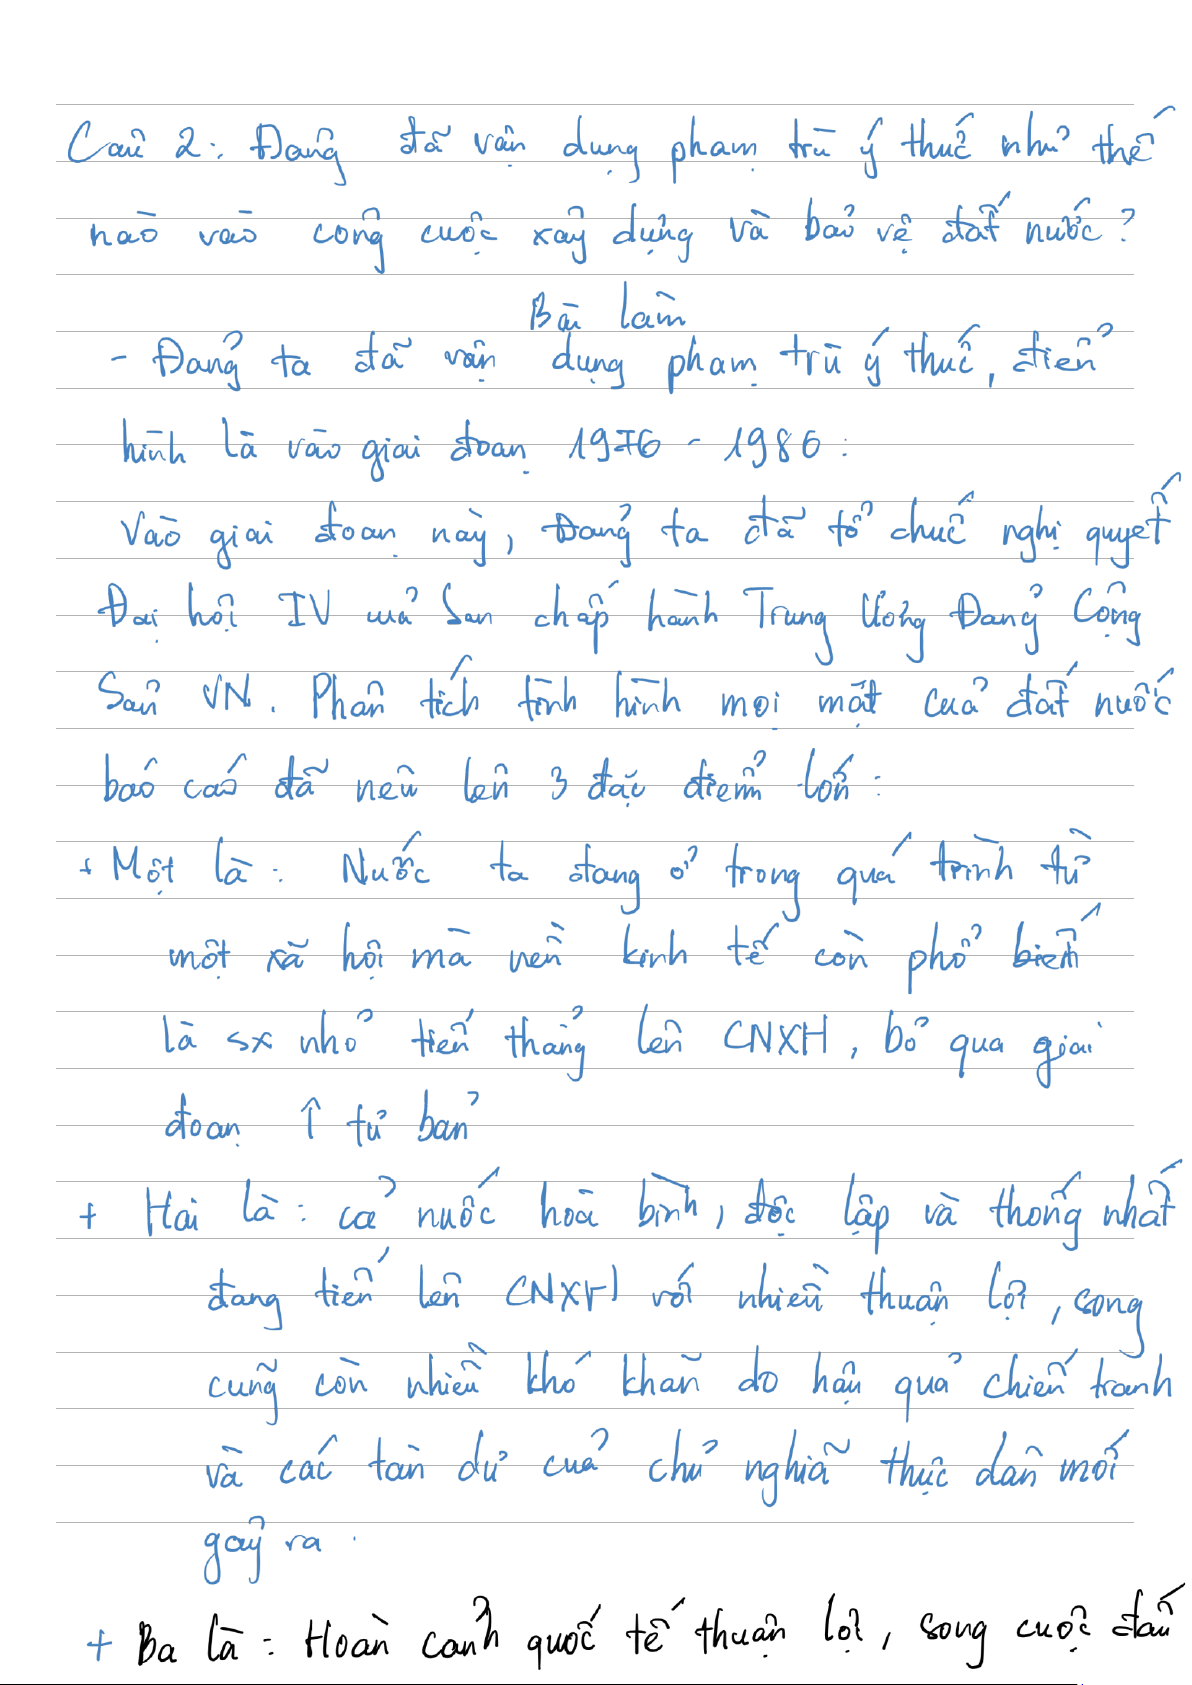 Câu 2: Đảng đã vận dụng phạm trù ý thức như thế
nào vào công cuộc xây dựng và bảo vệ đất nước?
Bài làm
- Đảng ta đã vận dụng phạm trù ý thức, điển
hình là vào giai đoạn 1976 - 1986:
Vào giai đoạn này, Đảng ta đã tổ chức nghị quyết
Đại hội IV của Ban chấp hành Trung Ương Đảng Cộng
Sản VN. Phân tích tình hình mọi mặt của đất nước
báo cáo đã nêu lên 3 đặc điểm lớn:
+ Một là: Nước ta đang ở trong quá trình từ
một xã hội mà nền kinh tế còn phổ biến
là sx nhỏ tiến thẳng lên CNXH, bỏ qua giai
đoạn ↑ tư bản
+ Hai là: cả nước hoà bình, độc lập và thống nhất
đang tiến lên CNXH với nhiều thuận lợi, song
cũng còn nhiều khó khăn do hậu quả chiến tranh
và các tàn dư của chủ nghĩa thực dân mới
gây ra.
+ Ba là: Hoàn cảnh quốc tế thuận lợi, song cuộc đấu